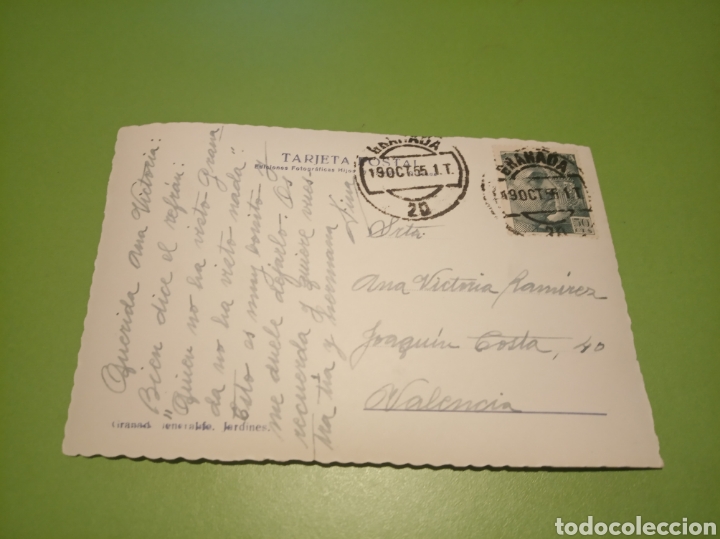 TARJETA POSTAL
Ediciones Fotográficas Hijos
Querida Ana Victoria:
Bien dice el refrán:
"Quien no ha visto Grana
da no ha visto nada"
Esto es muy bonito y
me duele dejarlo. Os
recuerda y quiere vues
tra tía y hermana
Fina
GRANADA
19 OCT.55.1.T.
20
GRANADA
19 OCT 55 1.T.
20
Srta.
Ana Victoria Ramírez
Joaquín Costa, 40
Valencia
Generalife. Jardines.
todocoleccion
todocoleccion.net